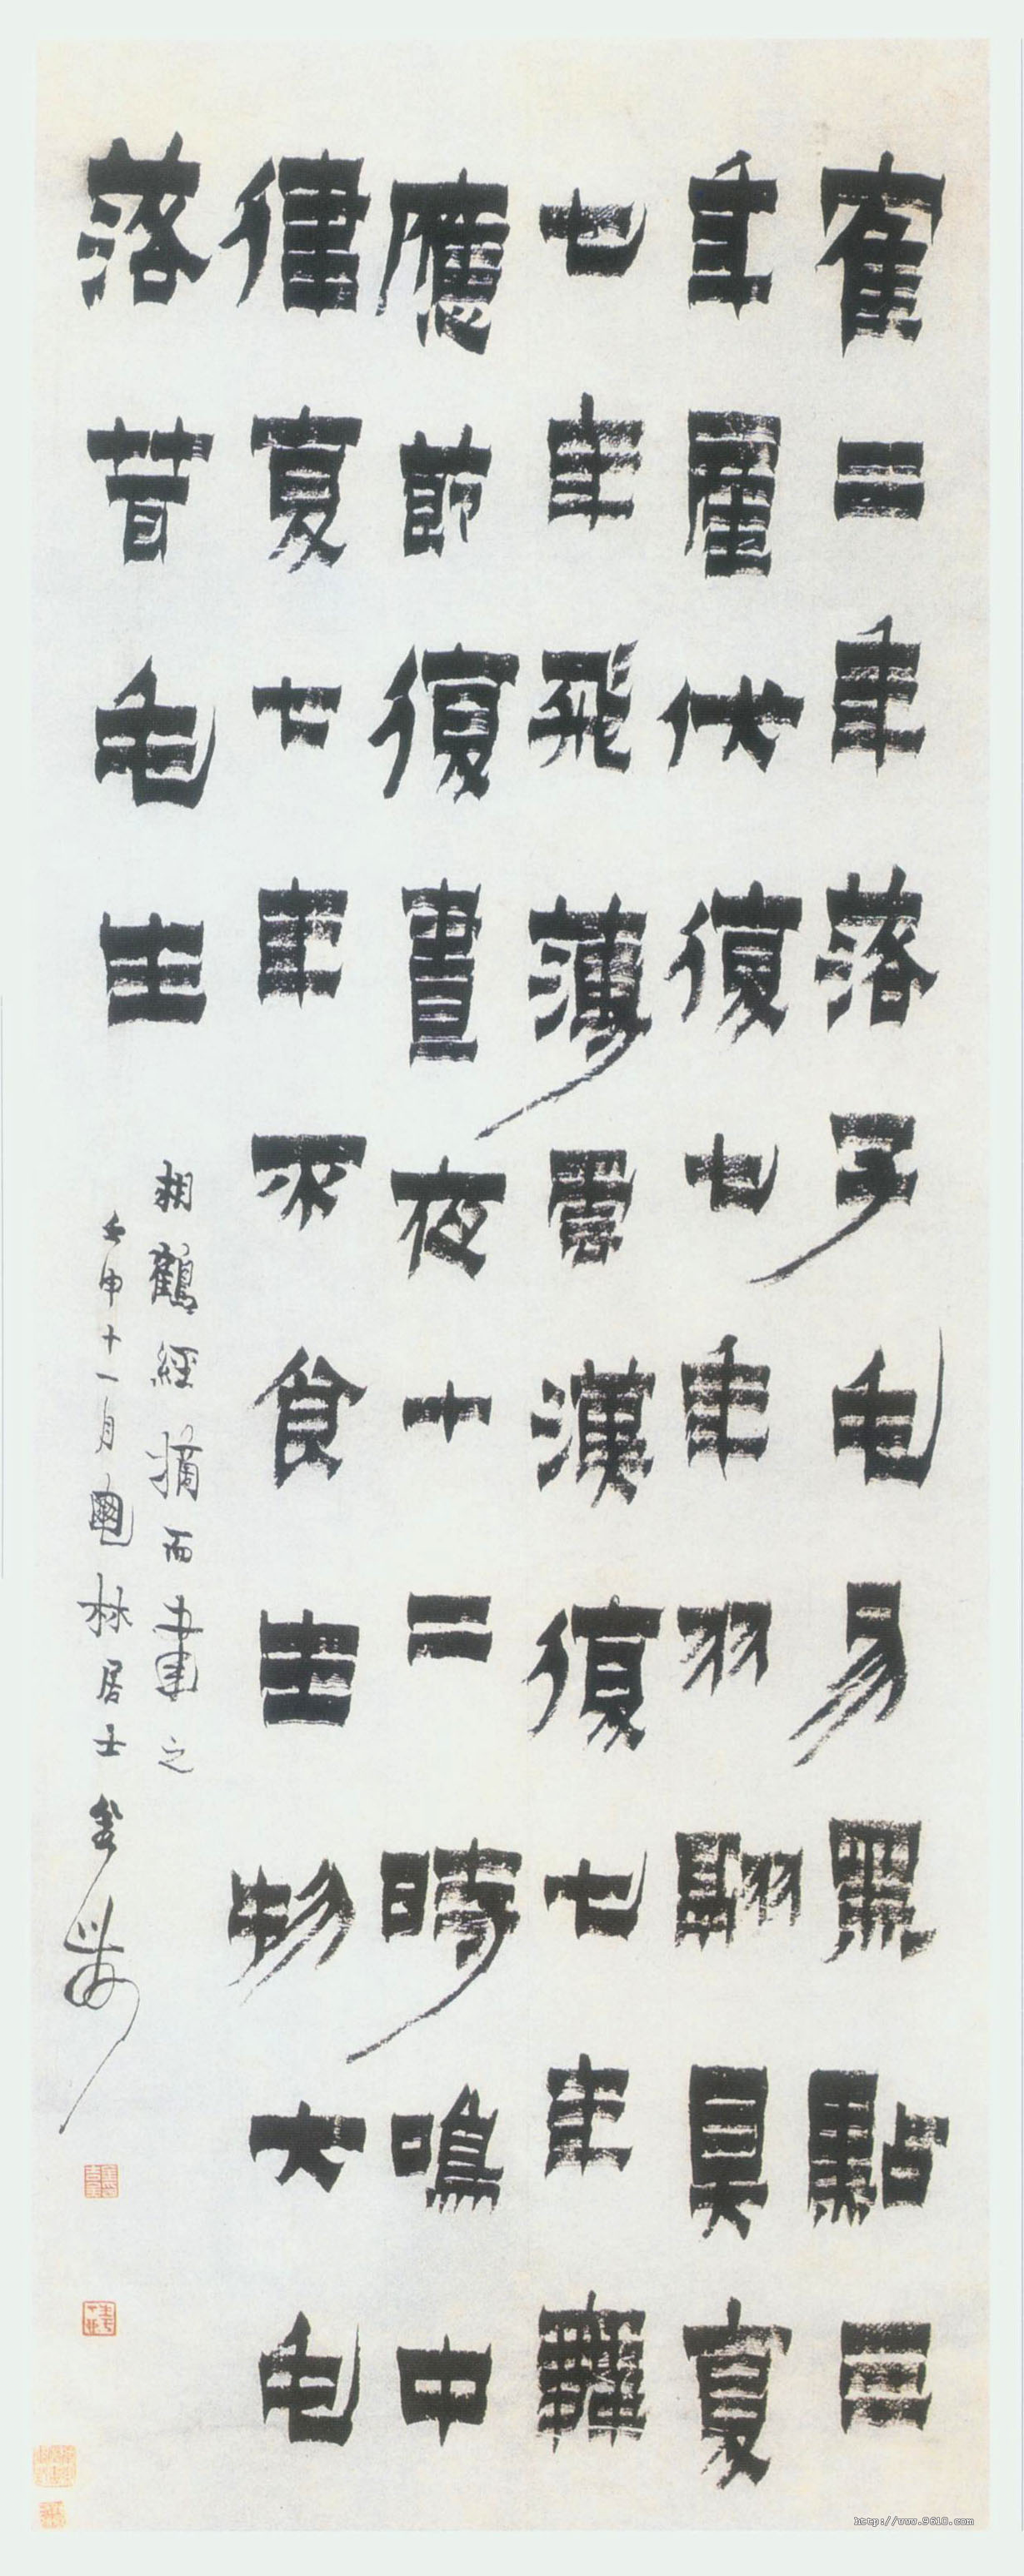 寉二年落子毛易黑點三
年產伏復七年羽翮具夏
七年飛薄雲漢復七年舞
應節復晝夜十二時鳴中
律夏七年不食生物大毛
落茸毛生
相鶴經摘而書之
壬申十一月林居士金農
http://www.9610.com